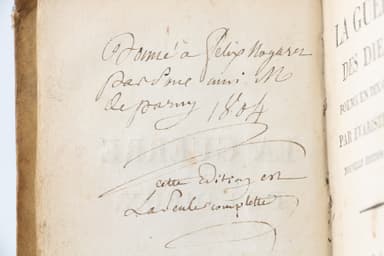 Donné à Félix Nogaret
par son ami M
de parny 1804
cette Edition est
La Seule complette
LA GUE
DES DIE
POËME EN DIX
PAR EVARISTE
NOUVELLE ÉDITION